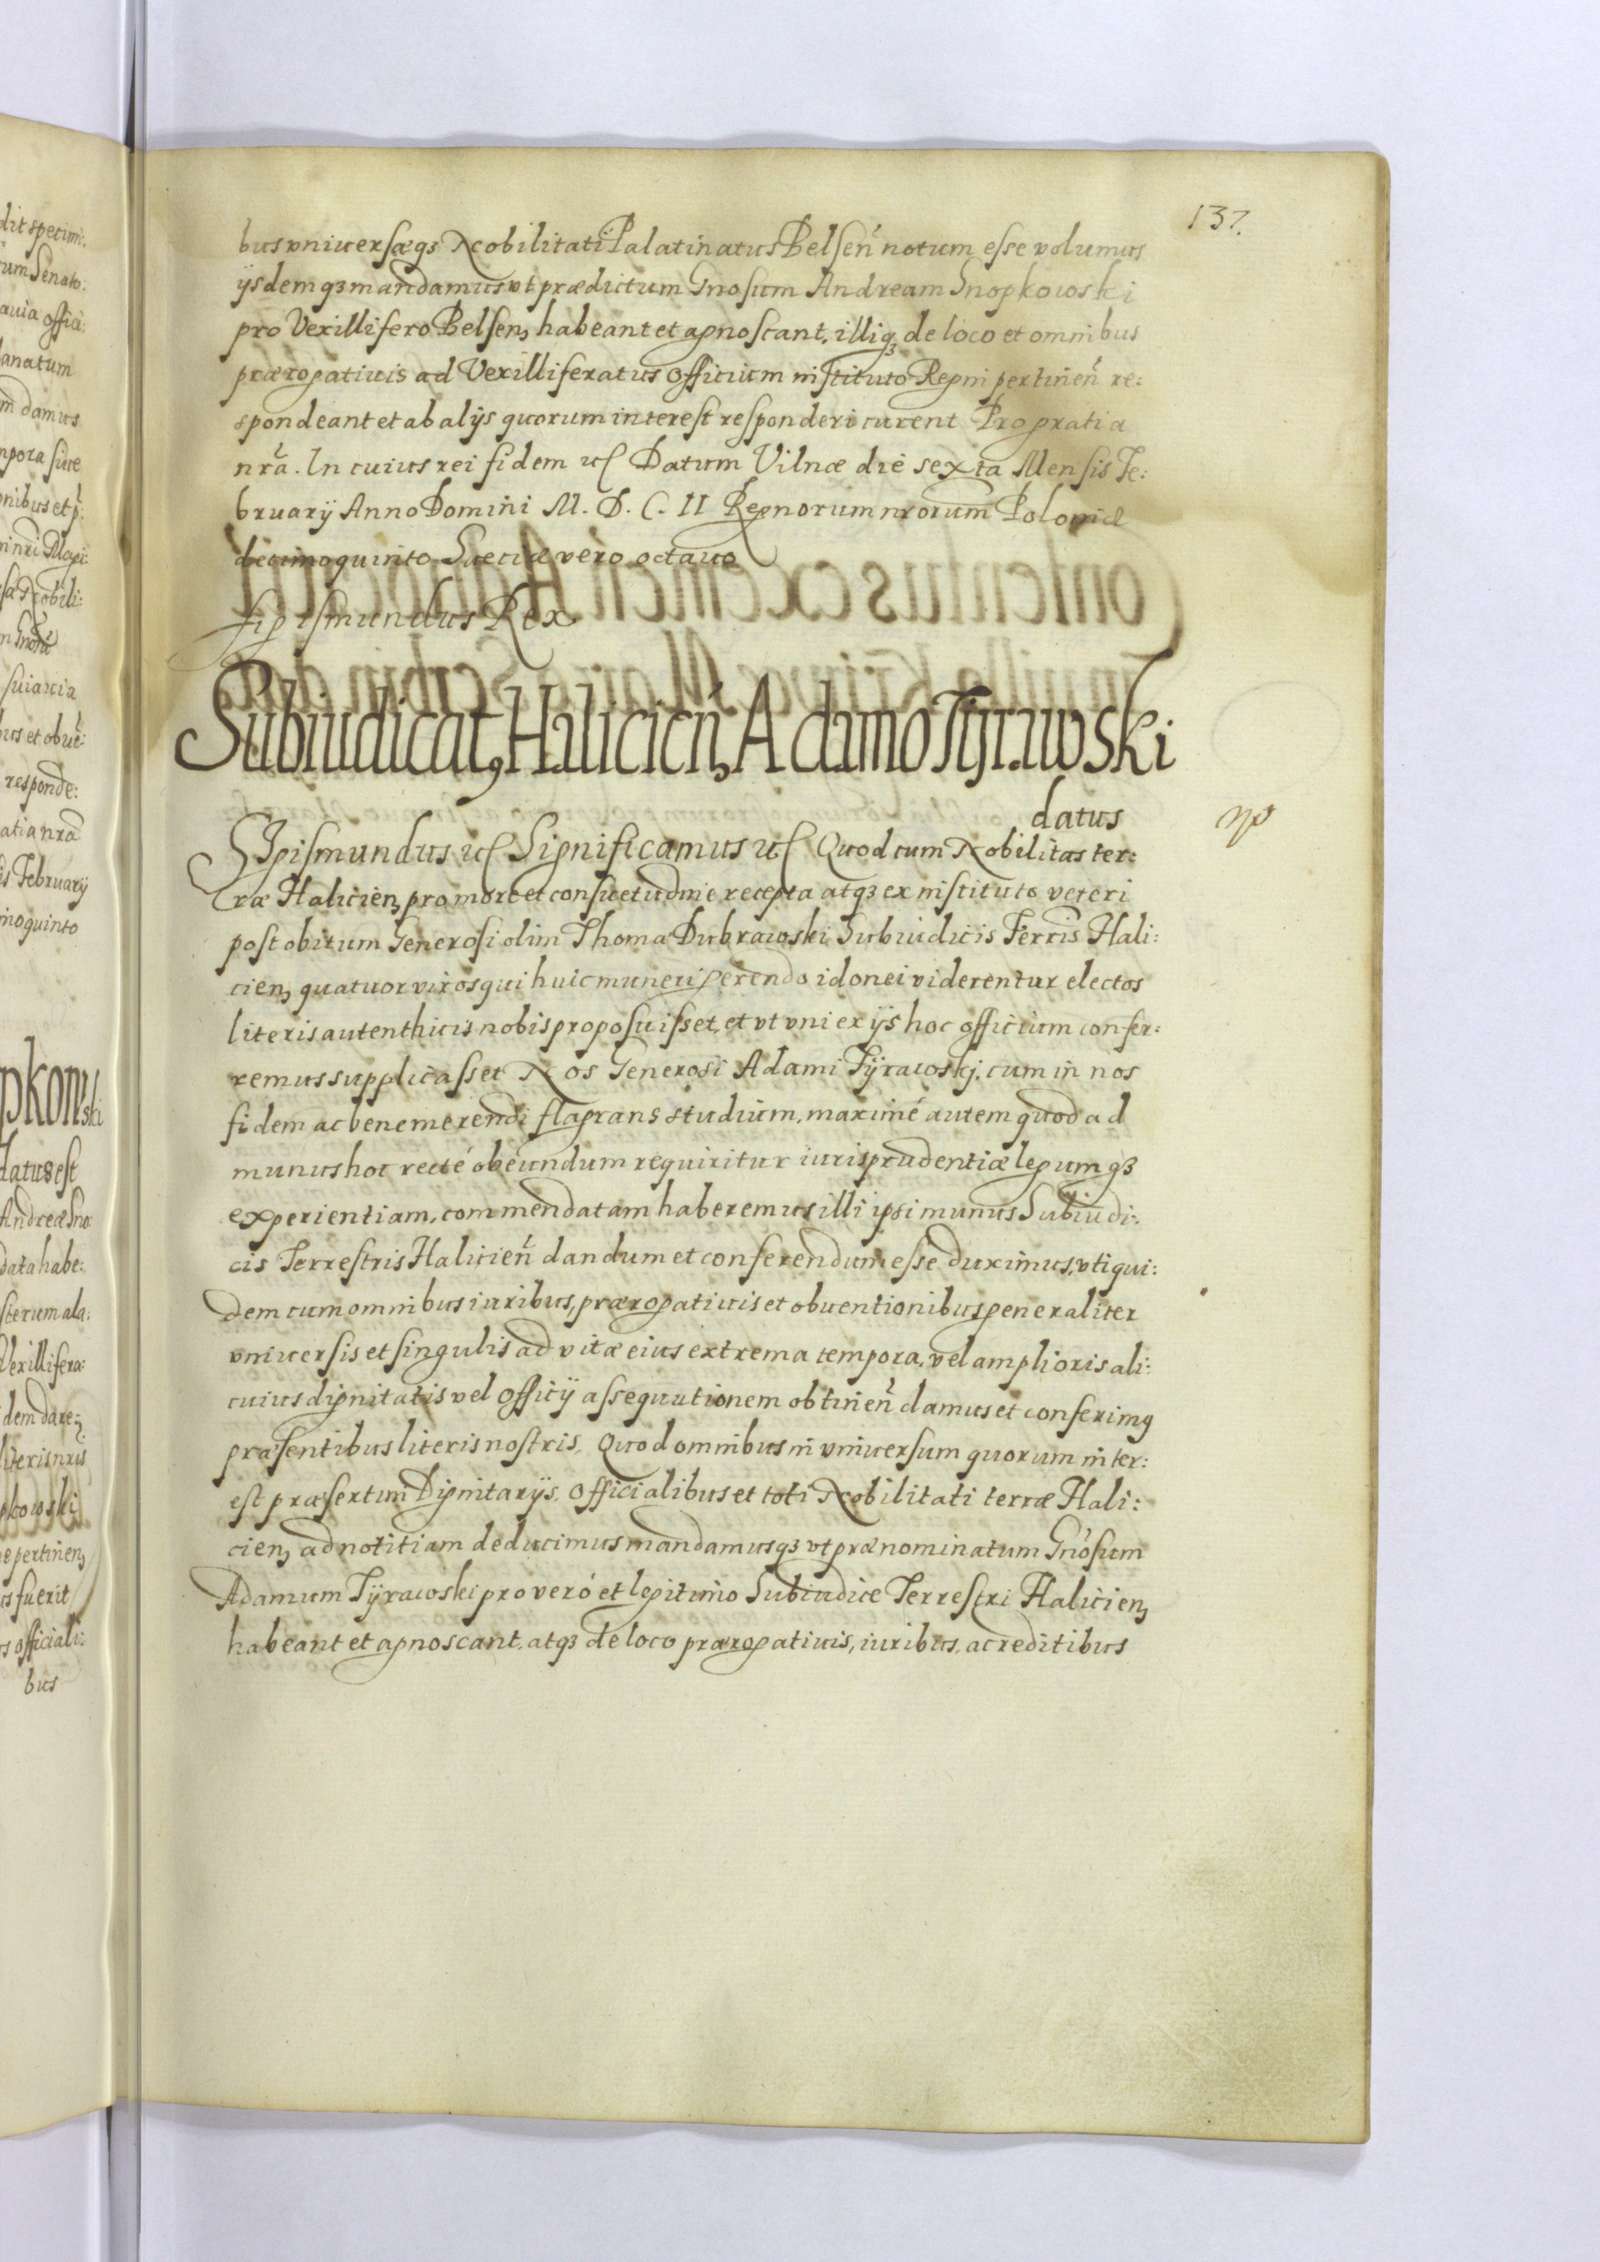 137.
bus vniuersæq3 Nobilitati Palatinatus Belsen̄ notum esse volumus
ijsdemq3 mandamus vt prædictum Gnosum Andream Snopkowski
pro Vexillifero Belsen, habeant et agnoscant, illiq3 de loco et omnibus
prærogatiuis ad Vexilliferatus officium instituto Regni pertinen̄ re:
spondeant et ab alijs quorum interest responderi curent Pro gratia
nrā. In cuius rei fidem etc Datum Vilnæ die sexta Mensis Fe:
bruarij Anno Domini M. D. C. II Regnorum nrorum Poloniæ
decimoquinto Sueciæ vero octauo
Sigismundus Rex
Subiudicatus Halicien, Adamo Tyrawski
datus
np
Sigismundus etc Significamus etc Quod cum Nobilitas ter:
ræ Halicien, pro more et consuetudine recepta atq3 ex instituto veteri
post obitum Generosi olim Thomæ Dubrawski Subiudicis Terris Hali:
cien, quatuor viros qui huic muneri gerendo idonei viderentur electos
literis autenthicis nobis proposuisset, et vt vni ex ijs hoc officium confer:
remus supplicasset Nos Generosi Adami Tyrawskj, cum in nos
fidem ac benemerendi flagrans studium, maximé autem quod ad
munus hoc recté obéundum requiritur iurisprudentiæ legumq3
experientiam, commendatam haberemus illi ipsi munus Subiudi:
cis Terrestris Halicien̄ dandum et conferendum esse duximus, vti qui:
dem cum omnibus iuribus, prærogatiuis et obuentionibus generaliter
vniuersis et singulis ad vitæ eius extrema tempora, vel amplioris ali:
cuius dignitatis vel officij assequutionem obtinen̄ damus et conferimus
præsentibus literis nostris, Quod omnibus in vniuersum quorum inter:
est præsertim Dignitarijs, Officialibus et toti Nobilitati terræ Hali:
cien, ad notitiam deducimus mandamusq3 vt prænominatum Gnósum
Adamum Tyrawski pro veró et legitimo Subiudice Terrestri Halicien,
habeant et agnoscant, atq3 de loco prærogatiuis, iuribus, ac reditibus